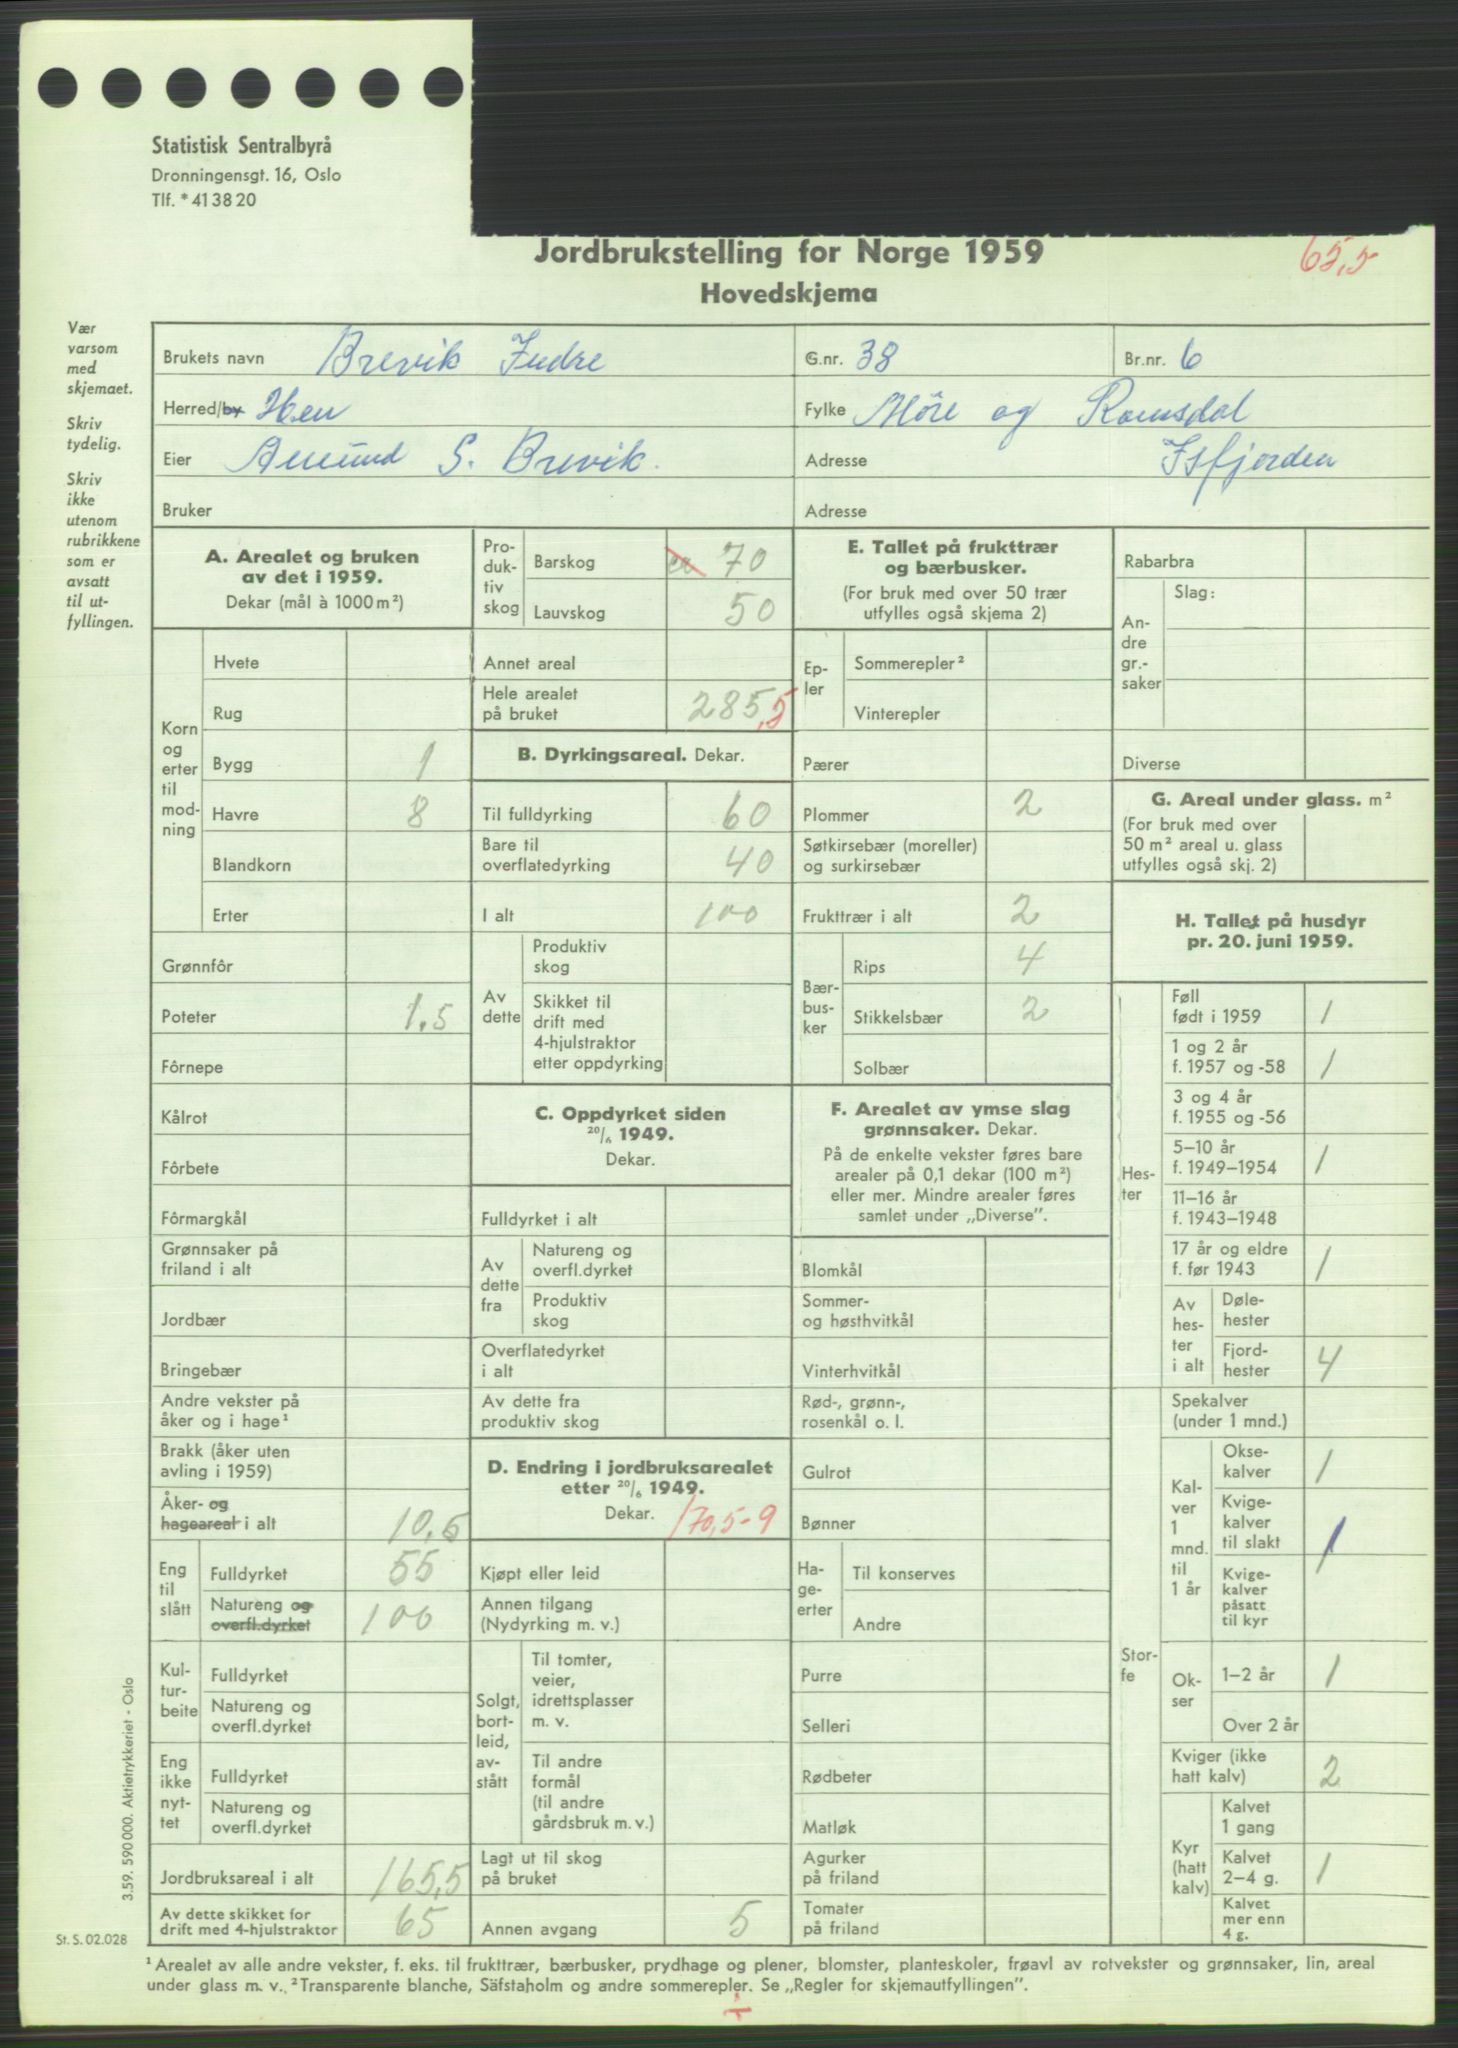 Statistisk Sentralbyrå
Dronningensgt. 16, Oslo
Tlf. * 41 38 20
Jordbrukstelling for Norge 1959
65,5
Hovedskjema
Vær
varsom
med
skjemaet.
Skriv
tydelig.
Skriv
ikke
utenom
rubrikkene
som er
avsatt
til ut-
fyllingen.
Brukets navn Brevik Indre G.nr. 38 Br.nr. 6
Herred/by Hen Fylke Möre og Romsdal
Eier Amund S. Brevik. Adresse Isfjorden
Bruker Adresse
A. Arealet og bruken
av det i 1959.
Dekar (mål à 1000 m²)
Korn
og
erter
til
mod-
ning
Hvete
Rug
Bygg 1
Havre 8
Blandkorn
Erter
Grønnfôr
Poteter 1,5
Fôrnepe
Kålrot
Fôrbete
Fôrmargkål
Grønnsaker på
friland i alt
Jordbær
Bringebær
Andre vekster på
åker og i hage¹
Brakk (åker uten
avling i 1959)
Åker- og
hageareal i alt 10,5
Eng
til
slått
Fulldyrket 55
Natureng og
overfl.dyrket 100
Kul-
tur-
beite
Fulldyrket
Natureng og
overfl.dyrket
Eng
ikke
nyt-
tet
Fulldyrket
Natureng og
overfl.dyrket
Jordbruksareal i alt 165,5
Av dette skikket for
drift med 4-hjulstraktor 65
Pro-
duk-
tiv
skog
Barskog ca 70
Lauvskog 50
Annet areal
Hele arealet
på bruket 285,5
B. Dyrkingsareal. Dekar.
Til fulldyrking 60
Bare til
overflatedyrking 40
I alt 100
Av
dette
Produktiv
skog
Skikket til
drift med
4-hjulstraktor
etter oppdyrking
C. Oppdyrket siden
20/6 1949.
Dekar.
Fulldyrket i alt
Av
dette
fra
Natureng og
overfl.dyrket
Produktiv
skog
Overflatedyrket
i alt
Av dette fra
produktiv skog
D. Endring i jordbruksarealet
etter 20/6 1949.
Dekar. 170,5-9
Kjøpt eller leid
Annen tilgang
(Nydyrking m. v.)
Solgt,
bort-
leid,
av-
stått
Til tomter,
veier,
idrettsplasser
m. v.
Til andre
formål
(til andre
gårdsbruk m. v.)
Lagt ut til skog
på bruket
Annen avgang 5
E. Tallet på frukttrær
og bærbusker.
(For bruk med over 50 trær
utfylles også skjema 2)
Ep-
ler
Sommerepler²
Vinterepler
Pærer
Plommer 2
Søtkirsebær (moreller)
og surkirsebær
Frukttrær i alt 2
Bær-
bus-
ker
Rips 4
Stikkelsbær 2
Solbær
F. Arealet av ymse slag
grønnsaker. Dekar.
På de enkelte vekster føres bare
arealer på 0,1 dekar (100 m²)
eller mer. Mindre arealer føres
samlet under „Diverse”.
Blomkål
Sommer-
og høsthvitkål
Vinterhvitkål
Rød-, grønn-,
rosenkål o. l.
Gulrot
Bønner
Ha-
ge-
erter
Til konserves
Andre
Purre
Selleri
Rødbeter
Matløk
Agurker
på friland
Tomater
på friland
Rabarbra
An-
dre
gr.-
saker
Slag:
Diverse
G. Areal under glass. m²
(For bruk med over
50 m² areal u. glass
utfylles også skj. 2)
H. Tallet på husdyr
pr. 20. juni 1959.
Hes-
ter
Føll
født i 1959 1
1 og 2 år
f. 1957 og -58 1
3 og 4 år
f. 1955 og -56
5–10 år
f. 1949–1954 1
11–16 år
f. 1943–1948
17 år og eldre
f. før 1943 1
Av
hes-
ter
i alt
Døle-
hester
Fjord-
hester 4
Stor-
fe
Spekalver
(under 1 mnd.)
Kal-
ver
1
mnd.
til
1 år
Okse-
kalver 1
Kvige-
kalver
til slakt 1
Kvige-
kalver
påsatt
til kyr
Ok-
ser
1–2 år 1
Over 2 år
Kviger (ikke
hatt kalv) 2
Kyr
(hatt
kalv)
Kalvet
1 gang
Kalvet
2–4 g. 1
Kalvet
mer enn
4 g.
3.59. 590 000. Aktietrykkeriet - Oslo
St. S. 02.028
¹ Arealet av alle andre vekster, f. eks. til frukttrær, bærbusker, prydhage og plener, blomster, planteskoler, frøavl av rotvekster og grønnsaker, lin, areal
under glass m. v. ² Transparente blanche, Säfstaholm og andre sommerepler. Se „Regler for skjemautfyllingen”.